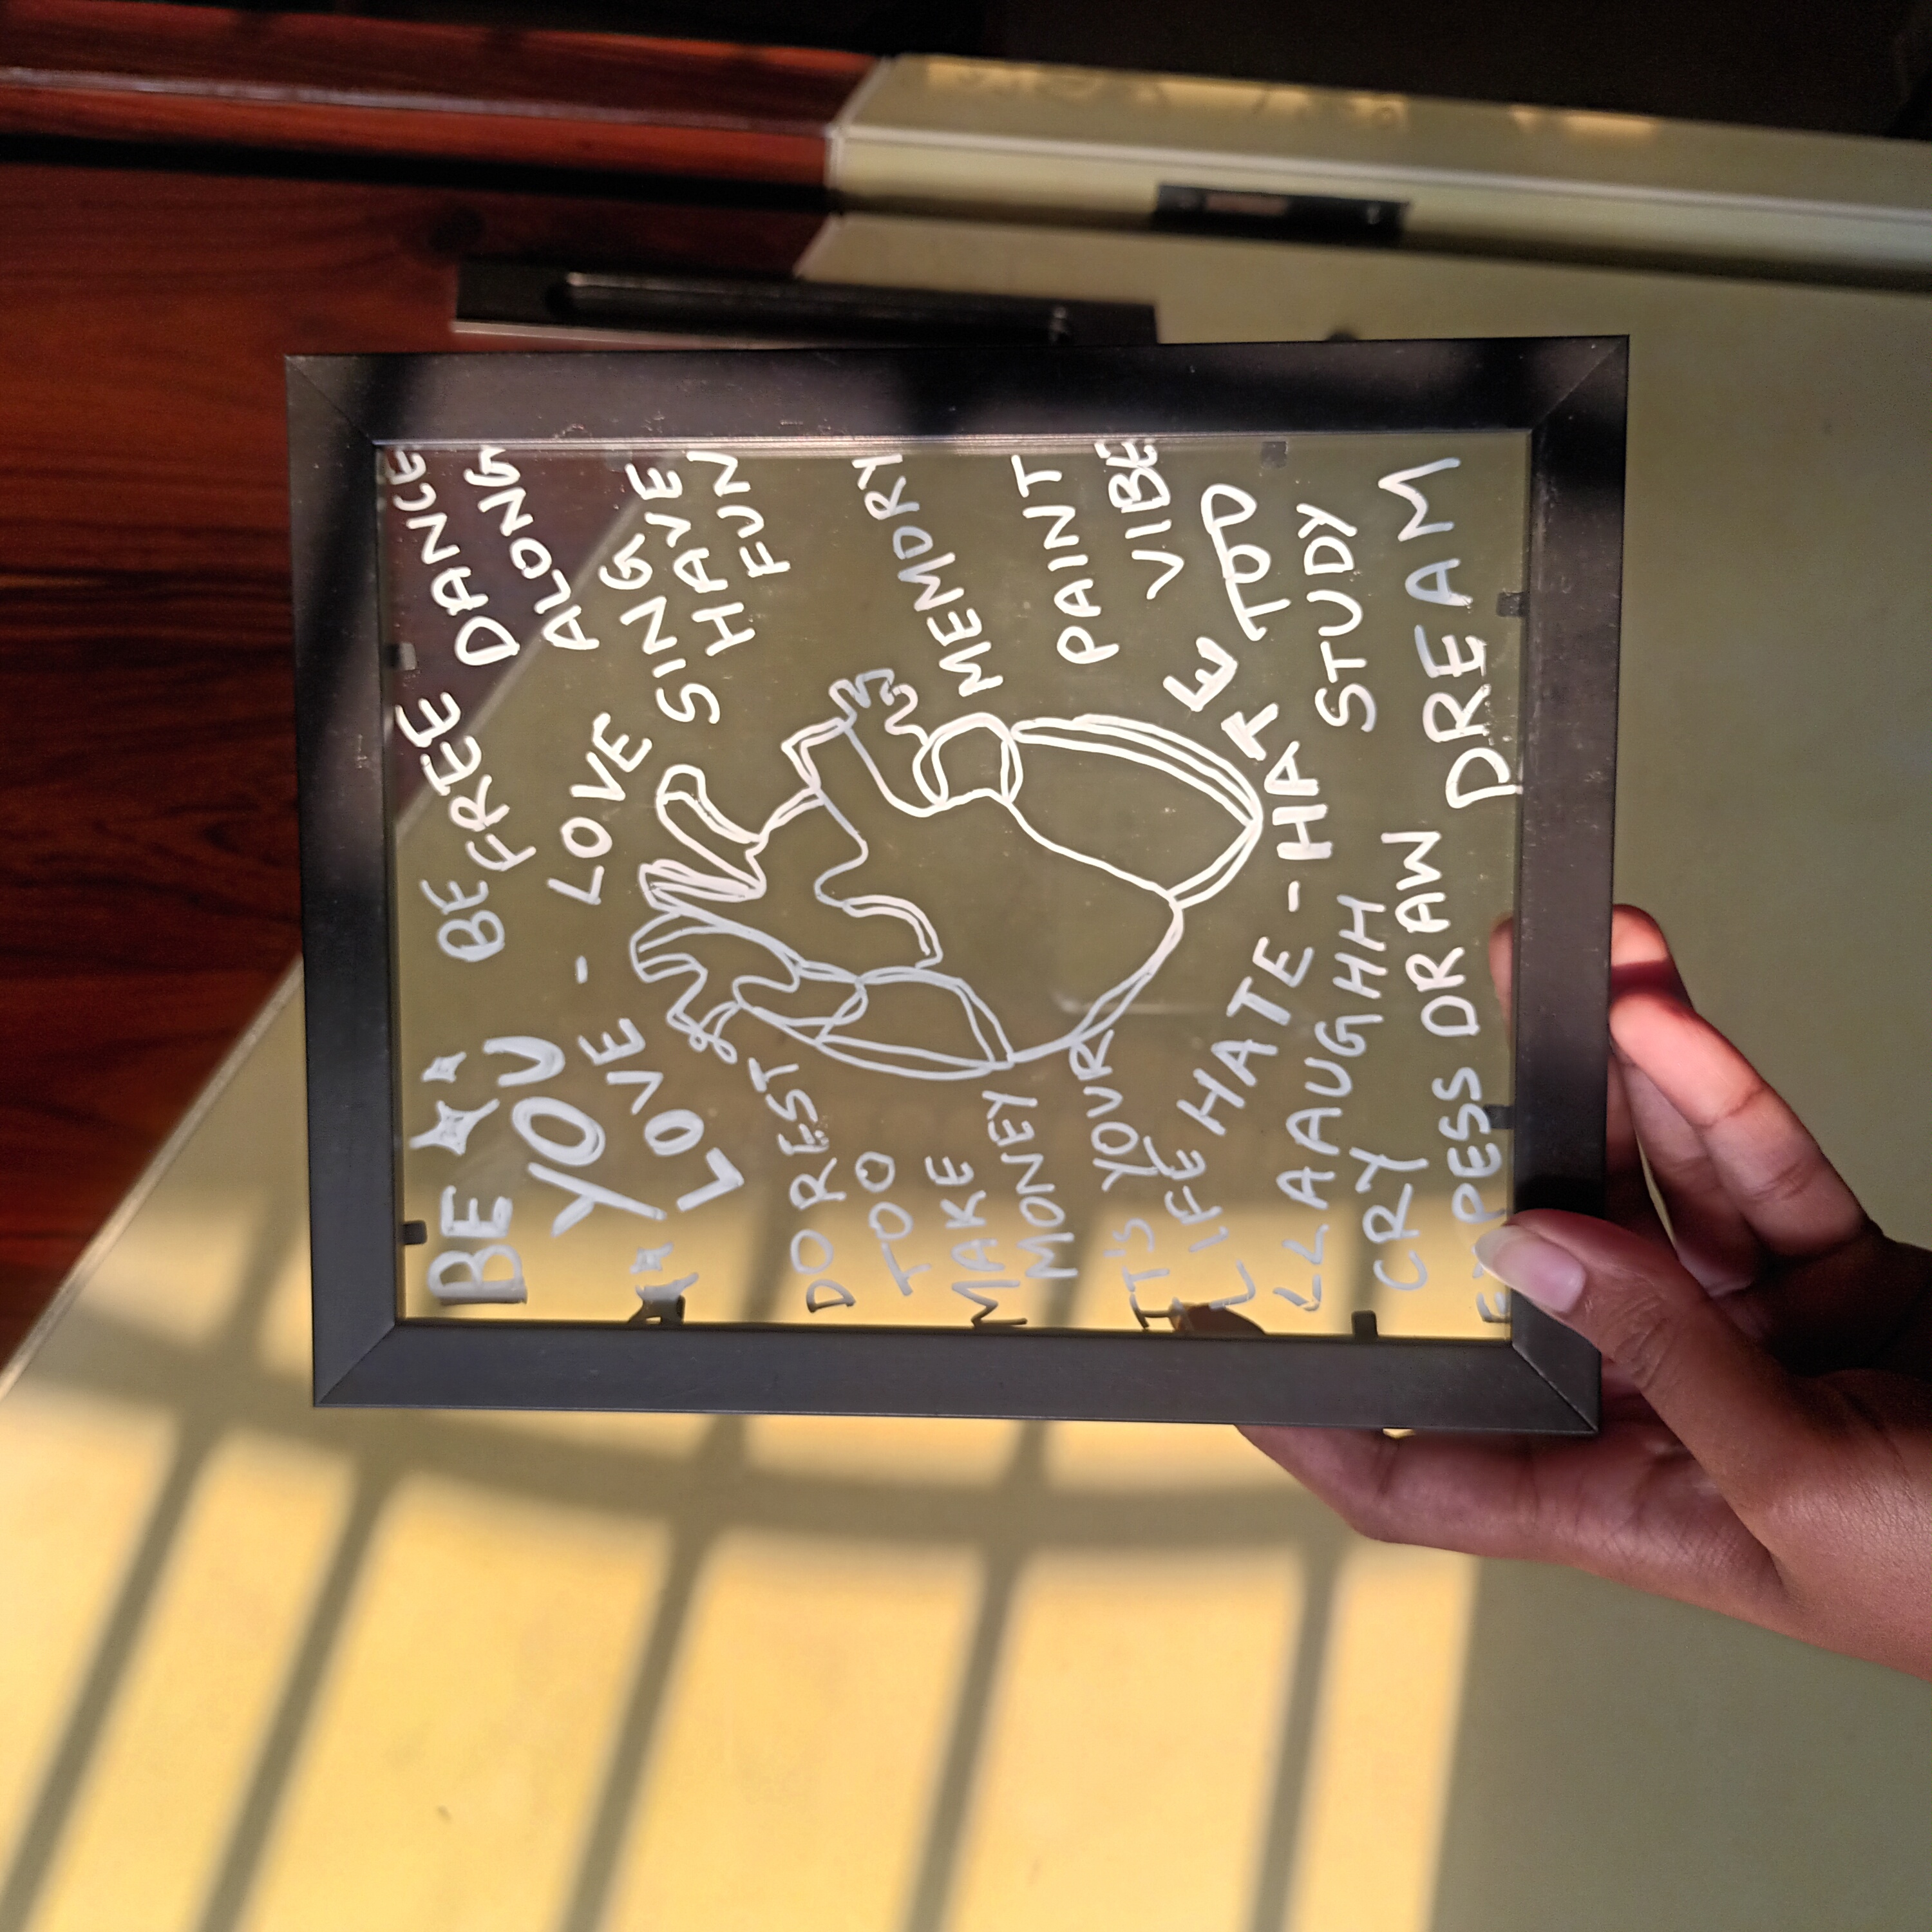 BE
YOU
BE FREE
DANCE
ALONG
LOVE - LOVE
SING
HAVE
FUN
DO REST
TOO
MAKE
MONEY
IT'S YOUR
LIFE
MEMORY
PAINT
VIBE
TOO
HATE - HATE
LLAAUGHH
STUDY
CRY
EXPESS DRAW
DREAM